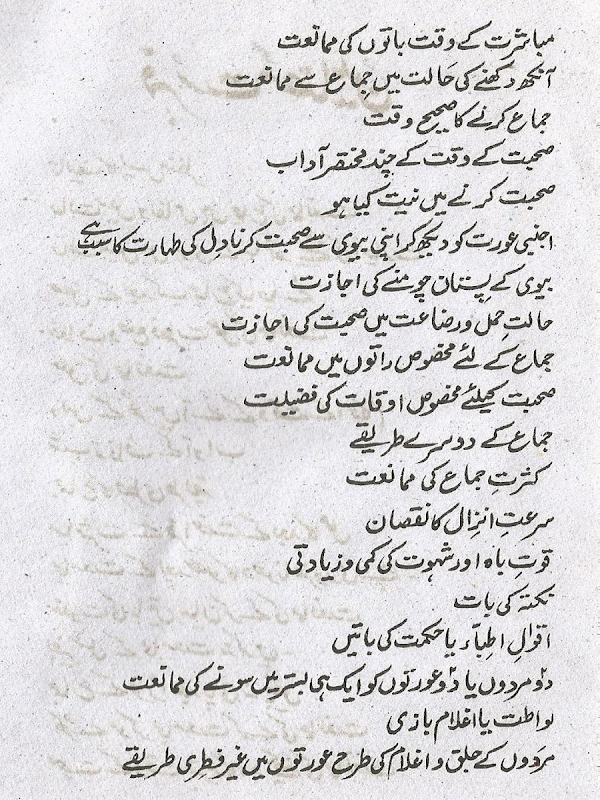 مباشرت کے وقت باتوں کی ممانعت
آنکھ دکھنے کی حالت میں جماع سے ممانعت
جماع کرنے کا صحیح وقت
صحبت کے وقت کے چند مختصر آداب
صحبت کرنے میں نیت کیا ہو
اجنبی عورت کو دیکھ کر اپنی بیوی سے صحبت کرنا دل کی طہارت کا سبب ہے
بیوی کے پستان چومنے کی اجازت
حالتِ حمل و رضاعت میں صحبت کی اجازت
جماع کے لئے مخصوص راتوں میں ممانعت
صحبت کیلئے مخصوص اوقات کی فضیلت
جماع کے دوسرے طریقے
کثرتِ جماع کی ممانعت
سرعتِ انزال کا نقصان
قوتِ باہ اور شہوت کی کمی و زیادتی
نکتہ کی بات
اقوالِ اطباء یا حکمت کی باتیں
دو مردوں یا دو عورتوں کو ایک ہی بستر میں سونے کی ممانعت
لواطت یا اغلام بازی
مردوں کے جلق و اغلام کی طرح عورتوں میں غیر فطری طریقے